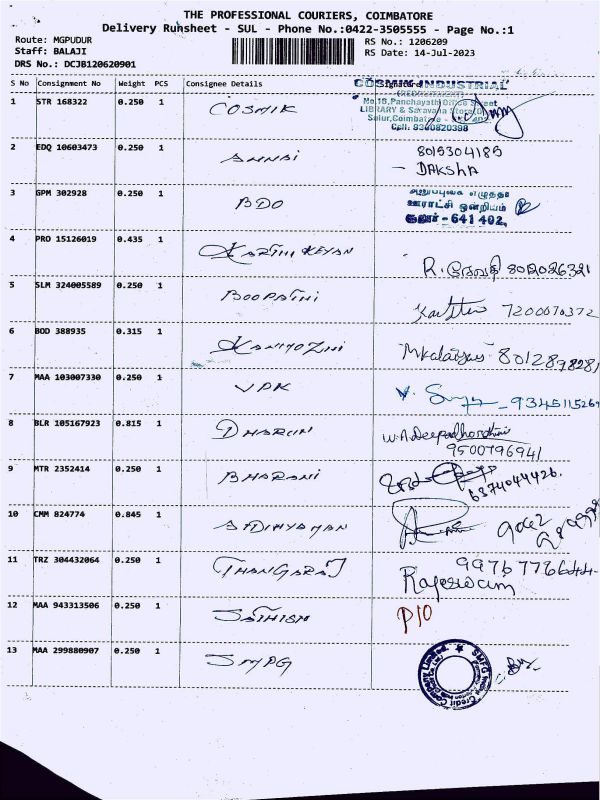 THE PROFESSIONAL COURIERS, COIMBATORE
Delivery Runsheet - SUL - Phone No.:0422-3505555 - Page No.:1
Route: MGPUDUR RS No.: 1206209
Staff: BALAJI RS Date: 14-Jul-2023
DRS No.: DCJB120620901
S No Consignment No Weight PCS Consignee Details Signature
COSMIK INDUSTRIAL
1 STR 168322 0.250 1 COSMIK
No.18,Panchayath Office Street
LIBRARY & Saravana Store
Sulur,Coimbatore
Cell: 9360820398
2 EDQ 10603473 0.250 1 ANNAI 8015304185
- DAKSHA
3 GPM 302928 0.250 1 BDO
ஊராட்சி ஒன்றியம்
சூலூர் - 641 402.
4 PRO 15126019 0.435 1 KARTHIKEYAN R. ரேவதி 8012026321
5 SLM 324005589 0.250 1 BOOPATHI 7200070372
6 BOD 388935 0.315 1 KANIMOZHI 8012898281
7 MAA 103007330 0.250 1 VPK V. 9345115269
8 BLR 105167923 0.815 1 DHARUN W.A.Deepadharshini
9500796941
9 MTR 2352414 0.250 1 BHARANI 6374044426.
10 CMM 824774 0.845 1 ADIHYAMAN
11 TRZ 304432064 0.250 1 THANGARAJ 99767 76644
Rajeswari
12 MAA 943313506 0.250 1 SATHISH P10
13 MAA 299880907 0.250 1 SMFG